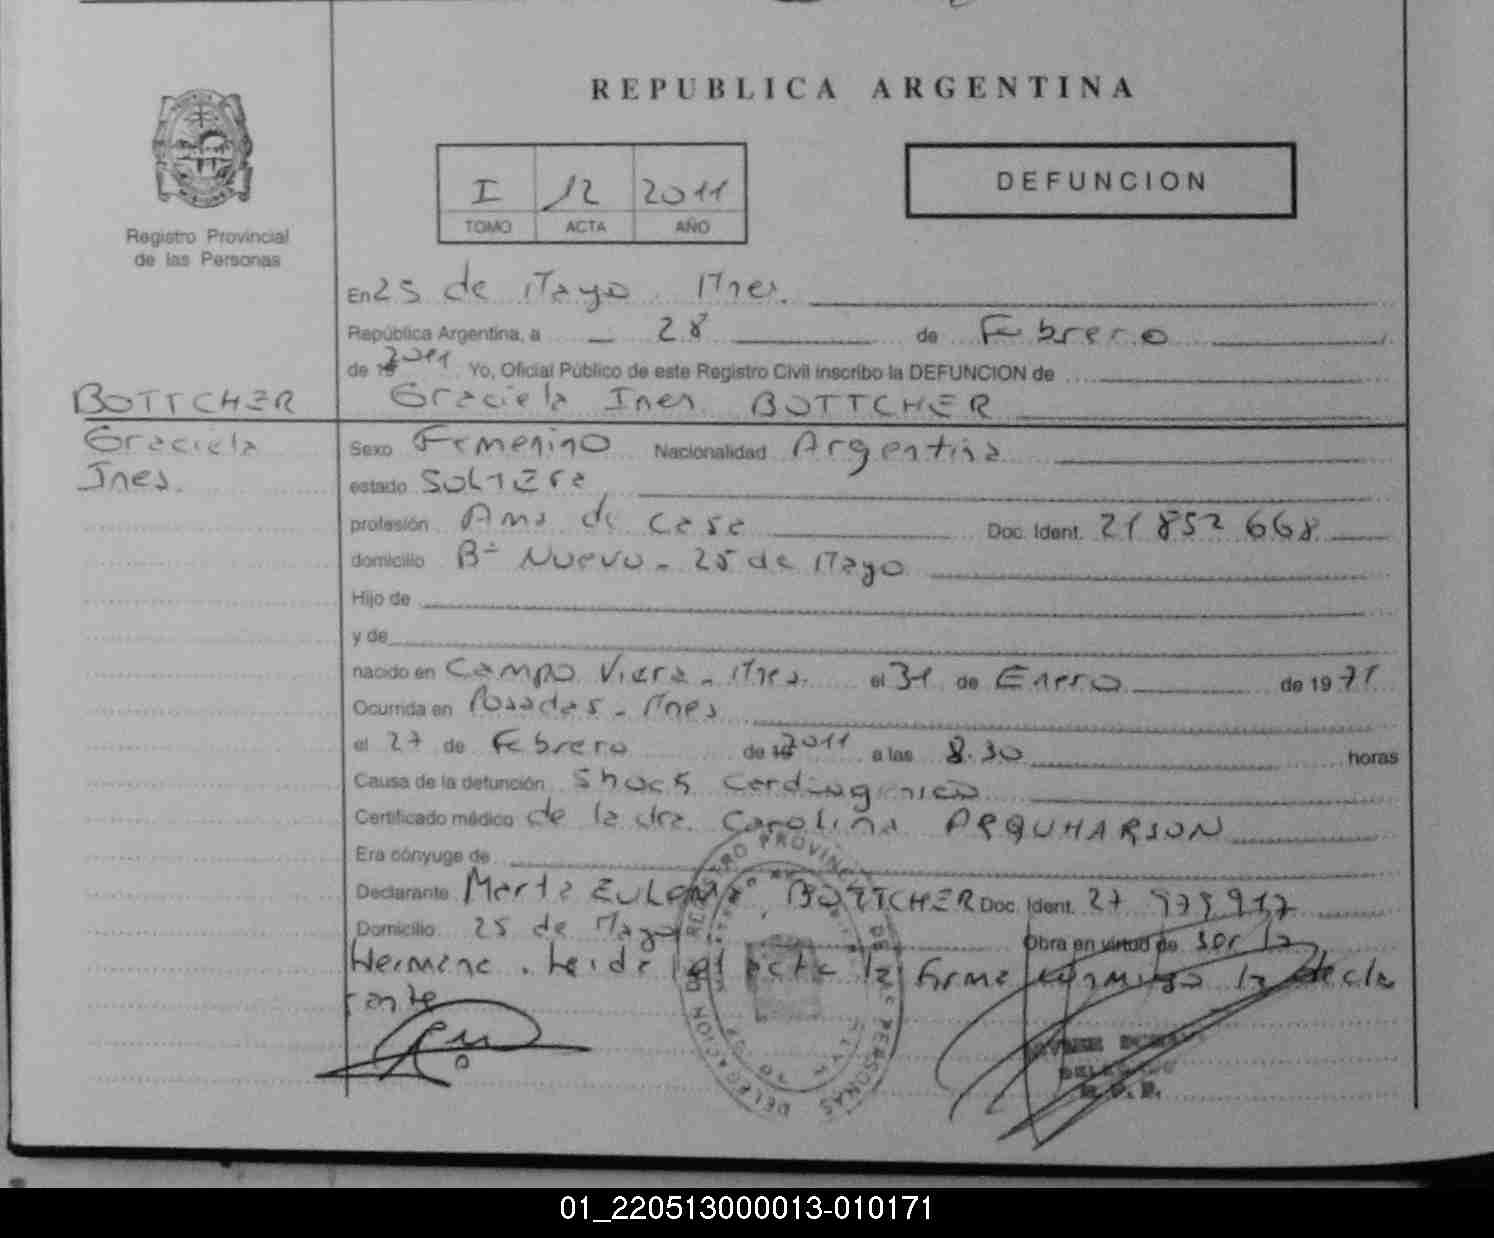 REPUBLICA ARGENTINA
Registro Provincial
de las Personas
I 12 2011
TOMO ACTA AÑO
DEFUNCION
En 25 de Mayo. Mnes.
República Argentina, a 28 de Febrero
de 19 2011 Yo, Oficial Público de este Registro Civil inscribo la DEFUNCION de
Graciela Ines BOTTCHER
BOTTCHER
Graciela
Ines.
Sexo Femenino Nacionalidad Argentina
estado Soltera
profesión Ama de Casa Doc. Ident. 21 852 668
domicilio Bº Nuevo - 25 de Mayo
Hijo de
y de
nacido en Campo Viera - Mnes. el 31 de Enero de 1971
Ocurrida en Posadas - Mnes
el 27 de Febrero de 19 2011 a las 8.30 horas
Causa de la defunción Shock Cardiogenico
Certificado médico de la dra. Carolina
Era cónyuge de
Declarante Marta BOTTCHER Doc. Ident. 27
Domicilio 25 de Mayo Obra en virtud de ser la
Hermana. Leida el acta la firma conmigo la decla
rante
REGISTRO PROVINCIAL DE LAS PERSONAS
DELEGACION
01_220513000013-010171